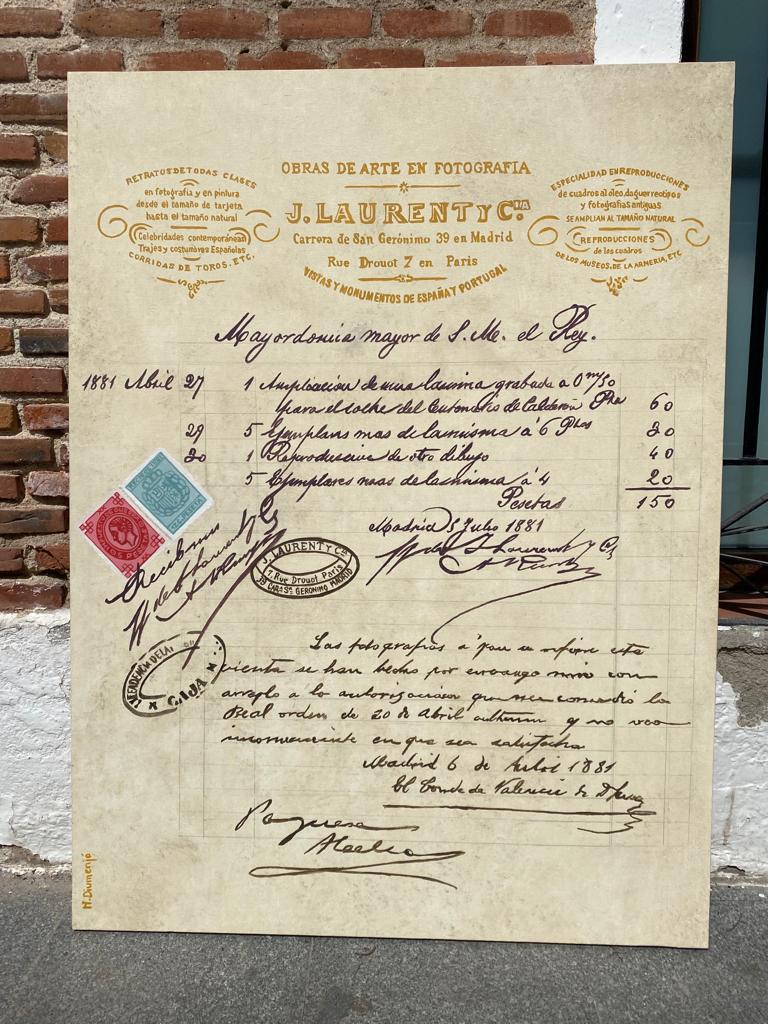 OBRAS DE ARTE EN FOTOGRAFIA
J. LAURENT Y C.IA
Carrera de San Gerónimo 39 en Madrid
Rue Drouot 7 en Paris
VISTAS Y MONUMENTOS DE ESPAÑA Y PORTUGAL
RETRATOS DE TODAS CLASES
en fotografia y en pintura
desde el tamaño de tarjeta
hasta el tamaño natural
Celebridades contemporáneas
Trajes y costumbres Españolas
CORRIDAS DE TOROS, ETC.
ESPECIALIDAD EN REPRODUCCIONES
de cuadros al óleo, daguerreotipos
y fotografias antiguas
SE AMPLIAN AL TAMAÑO NATURAL
REPRODUCCIONES
de los cuadros
DE LOS MUSEOS, DE LA ARMERIA, ETC
Mayordomia mayor de S. M. el Rey.
1881 Abril 27 1 Ampliacion de una lamina grabada a 0m50
para el coche del Centenario de Calderón Ptas 60
29 5 Ejemplares mas de la misma á 6 Ptas 30
30 1 Reproduccion de otro dibujo 40
5 Ejemplares mas de la misma á 4 20
Pesetas 150
Madrid 5 Julio 1881
Recibimos
J. Laurent y Cia
J. Laurent y Cia
J. LAURENT Y Cia
7. Rue Drouot Paris
39 CARa Sn GERONIMO MADRID
CAJA
Las fotografias á que se refiere esta
cuenta se han hecho por encargo mio con
arreglo a la autorizacion que me concedió la
Real orden de 20 de Abril ultimo y no veo
inconveniente en que sea satisfecha
Madrid 6 de Julio 1881
El Conde de Valencia de Dn Juan
Paguese
N. Diumenjó